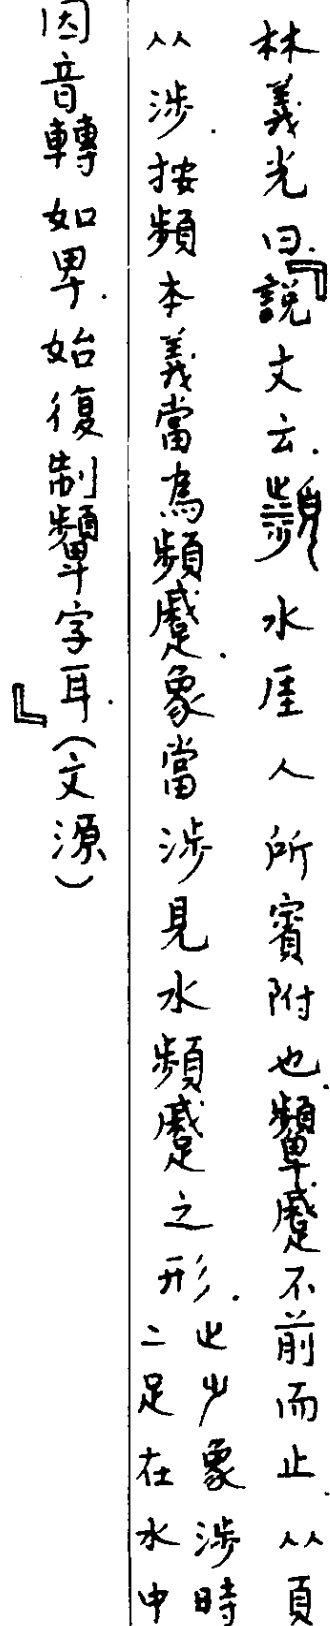 林義光曰.『說文云.瀕水厓人所賓附也.顰蹙不前而止.从頁
从涉.按頻本義當為頻蹙.象當涉見水頻蹙之形.止少象涉時二足在水中
因音轉如卑.始復制顰字耳.』(文源)